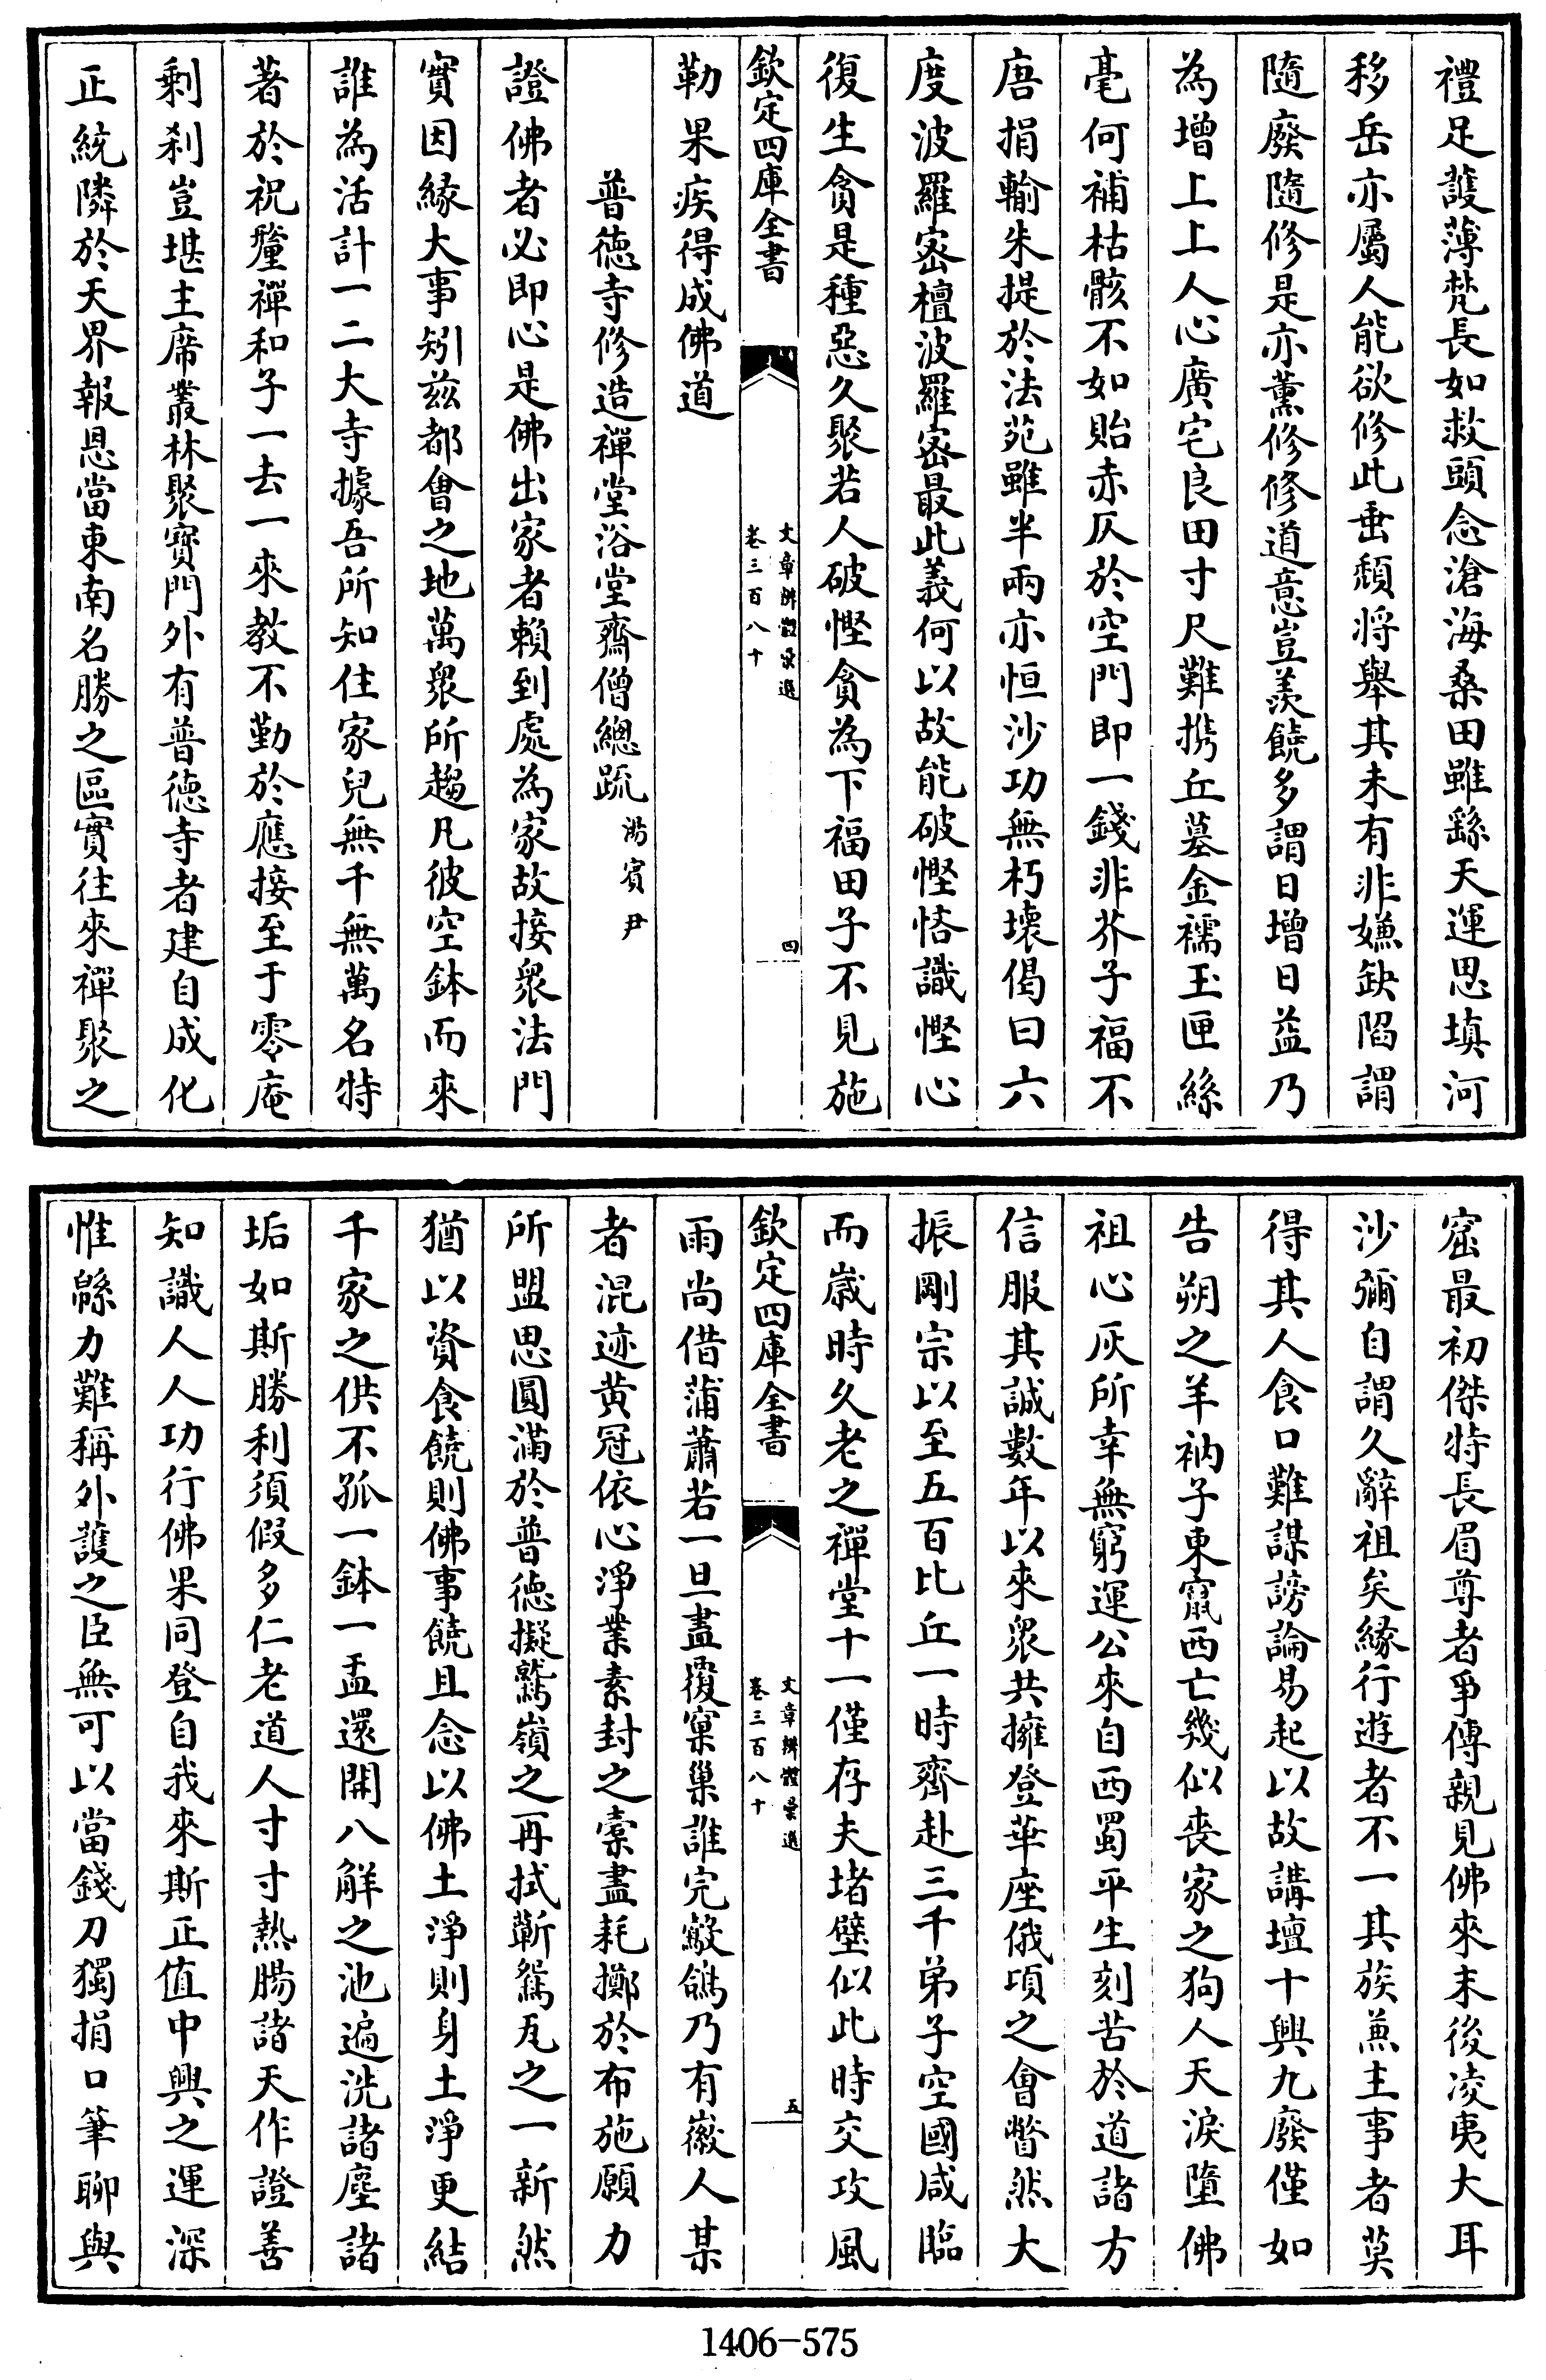 禮足護薄梵長如救頭念滄海桑田雖繇天運思填河
移岳亦屬人能欲修此垂頽將舉其未有非嫌缺陷謂
隨廢隨修是亦薰修修道意豈羨饒多謂日增日益乃
為增上上人心廣宅良田寸尺難携丘墓金襦玉匣絲
毫何補枯骸不如貽赤仄於空門即一錢非芥子福不
唐捐輸朱提於法苑雖半兩亦恒沙功無朽壞偈曰六
度波羅密檀波羅密最此義何以故能破慳悋識慳心
復生貪是種惡久聚若人破慳貪為下福田子不見施
欽定四庫全書
文章辨體彙選
卷三百八十
四
勒果疾得成佛道
普德寺修造禪堂浴堂齋僧總疏 湯賓尹
證佛者必即心是佛出家者賴到處為家故接衆法門
實因緣大事矧兹都會之地萬衆所趨凡彼空鉢而來
誰為活計一二大寺據吾所知住家兒無千無萬名特
著於祝釐禪和子一去一來教不勤於應接至于零庵
剩刹豈堪主席叢林聚寶門外有普德寺者建自成化
正統隣於天界報恩當東南名勝之區實往來禪聚之
窟最初傑特長眉尊者爭傳親見佛來末後凌夷大耳
沙彌自謂久辭祖矣緣行遊者不一其族兼主事者莫
得其人食口難謀謗論易起以故講壇十興九廢僅如
告朔之羊衲子東竄西亡幾似喪家之狗人天淚墮佛
祖心灰所幸無窮運公來自西蜀平生刻苦於道諸方
信服其誠數年以來衆共擁登華座俄頃之會瞥然大
振剛宗以至五百比丘一時齊赴三千弟子空國咸臨
而歲時久老之禪堂十一僅存夫堵壁似此時交攻風
欽定四庫全書
文章辨體彙選
卷三百八十
五
雨尚借蒲蕭若一旦盡覆窠巢誰完鷇鴿乃有徽人某
者混迹黄冠依心淨業素封之槖盡耗擲於布施願力
所盟思圓滿於普德擬鷲嶺之再拭蘄鴛瓦之一新然
猶以資食饒則佛事饒且念以佛土淨則身土淨更結
千家之供不孤一鉢一盂還開八解之池遍洗諸塵諸
垢如斯勝利須假多仁老道人寸寸熱腸諸天作證善
知識人人功行佛果同登自我來斯正值中興之運深
惟緜力難稱外護之臣無可以當錢刀獨捐口筆聊與
1406-575